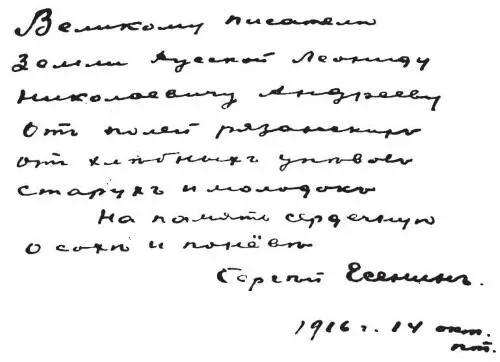 Великому писателю
Земли Русской Леониду
Николаевичу Андрееву
От полей рязанскихъ
от хлѣбныхъ упѣвовъ
старухъ и молодокъ
На память сердечную
о сохѣ и понёвѣ
Сергѣй Есенинъ.
1916 г. 14 окт.
пт.